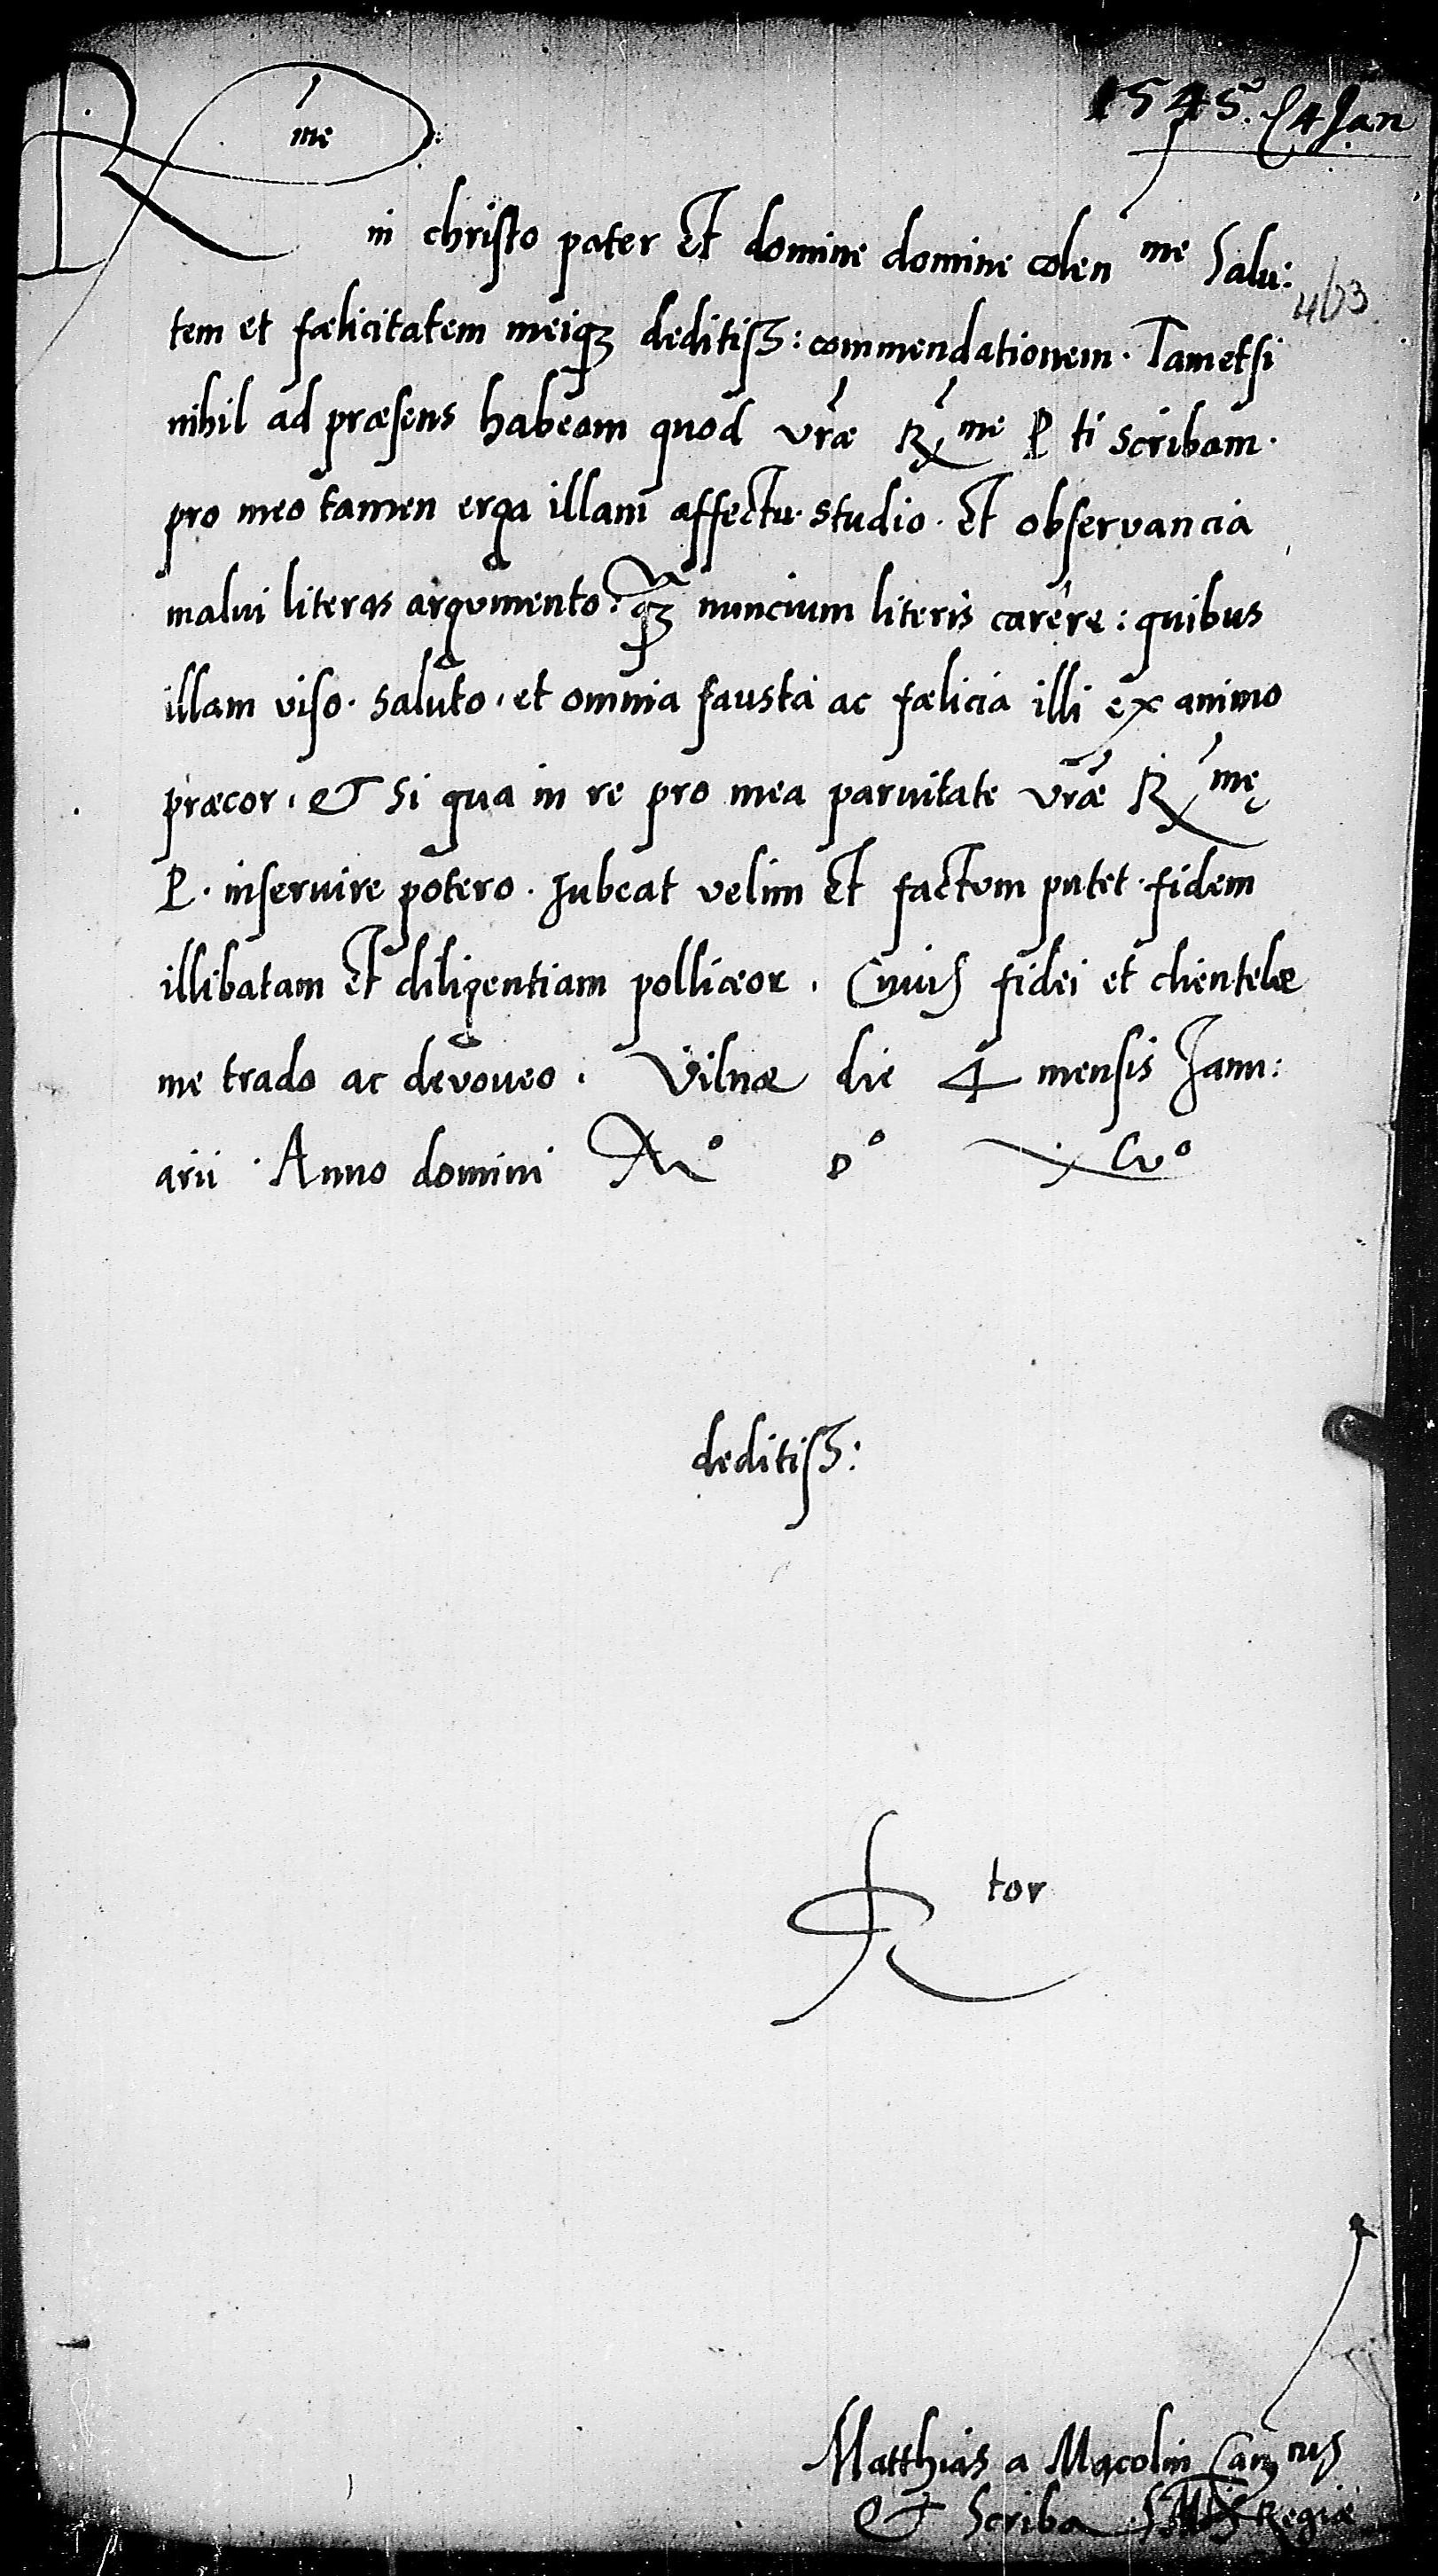 1545. 4 Jan
R me
in christo pater Et domine domine colen me Salu:
463
tem et fœlicitatem meiqꝫ deditiss: commendationem. Tametsi
nihil ad præsens habeam quod vræ R me P ti scribam.
pro meo tamen erga illam affectu. studio. Et observancia
malui literas argumento. qꝫ nuncium literis carere: quibus
illam viso. saluto. et omnia fausta ac fœlicia illi ex animo
præcor. Et si qua in re pro mea parvitate vræ R mę
P. inservire potero. Jubeat velim Et factum putet. fidem
illibatam Et diligentiam polliceor. Cuius fidei et clientelæ
me trado ac devoveo. Vilnæ die 4 mensis Janu:
arii. Anno domini Mo Do xLvo
deditiss:
S tor
Matthias a Mącolin Can cus
Et Scriba S Mtis Regiæ